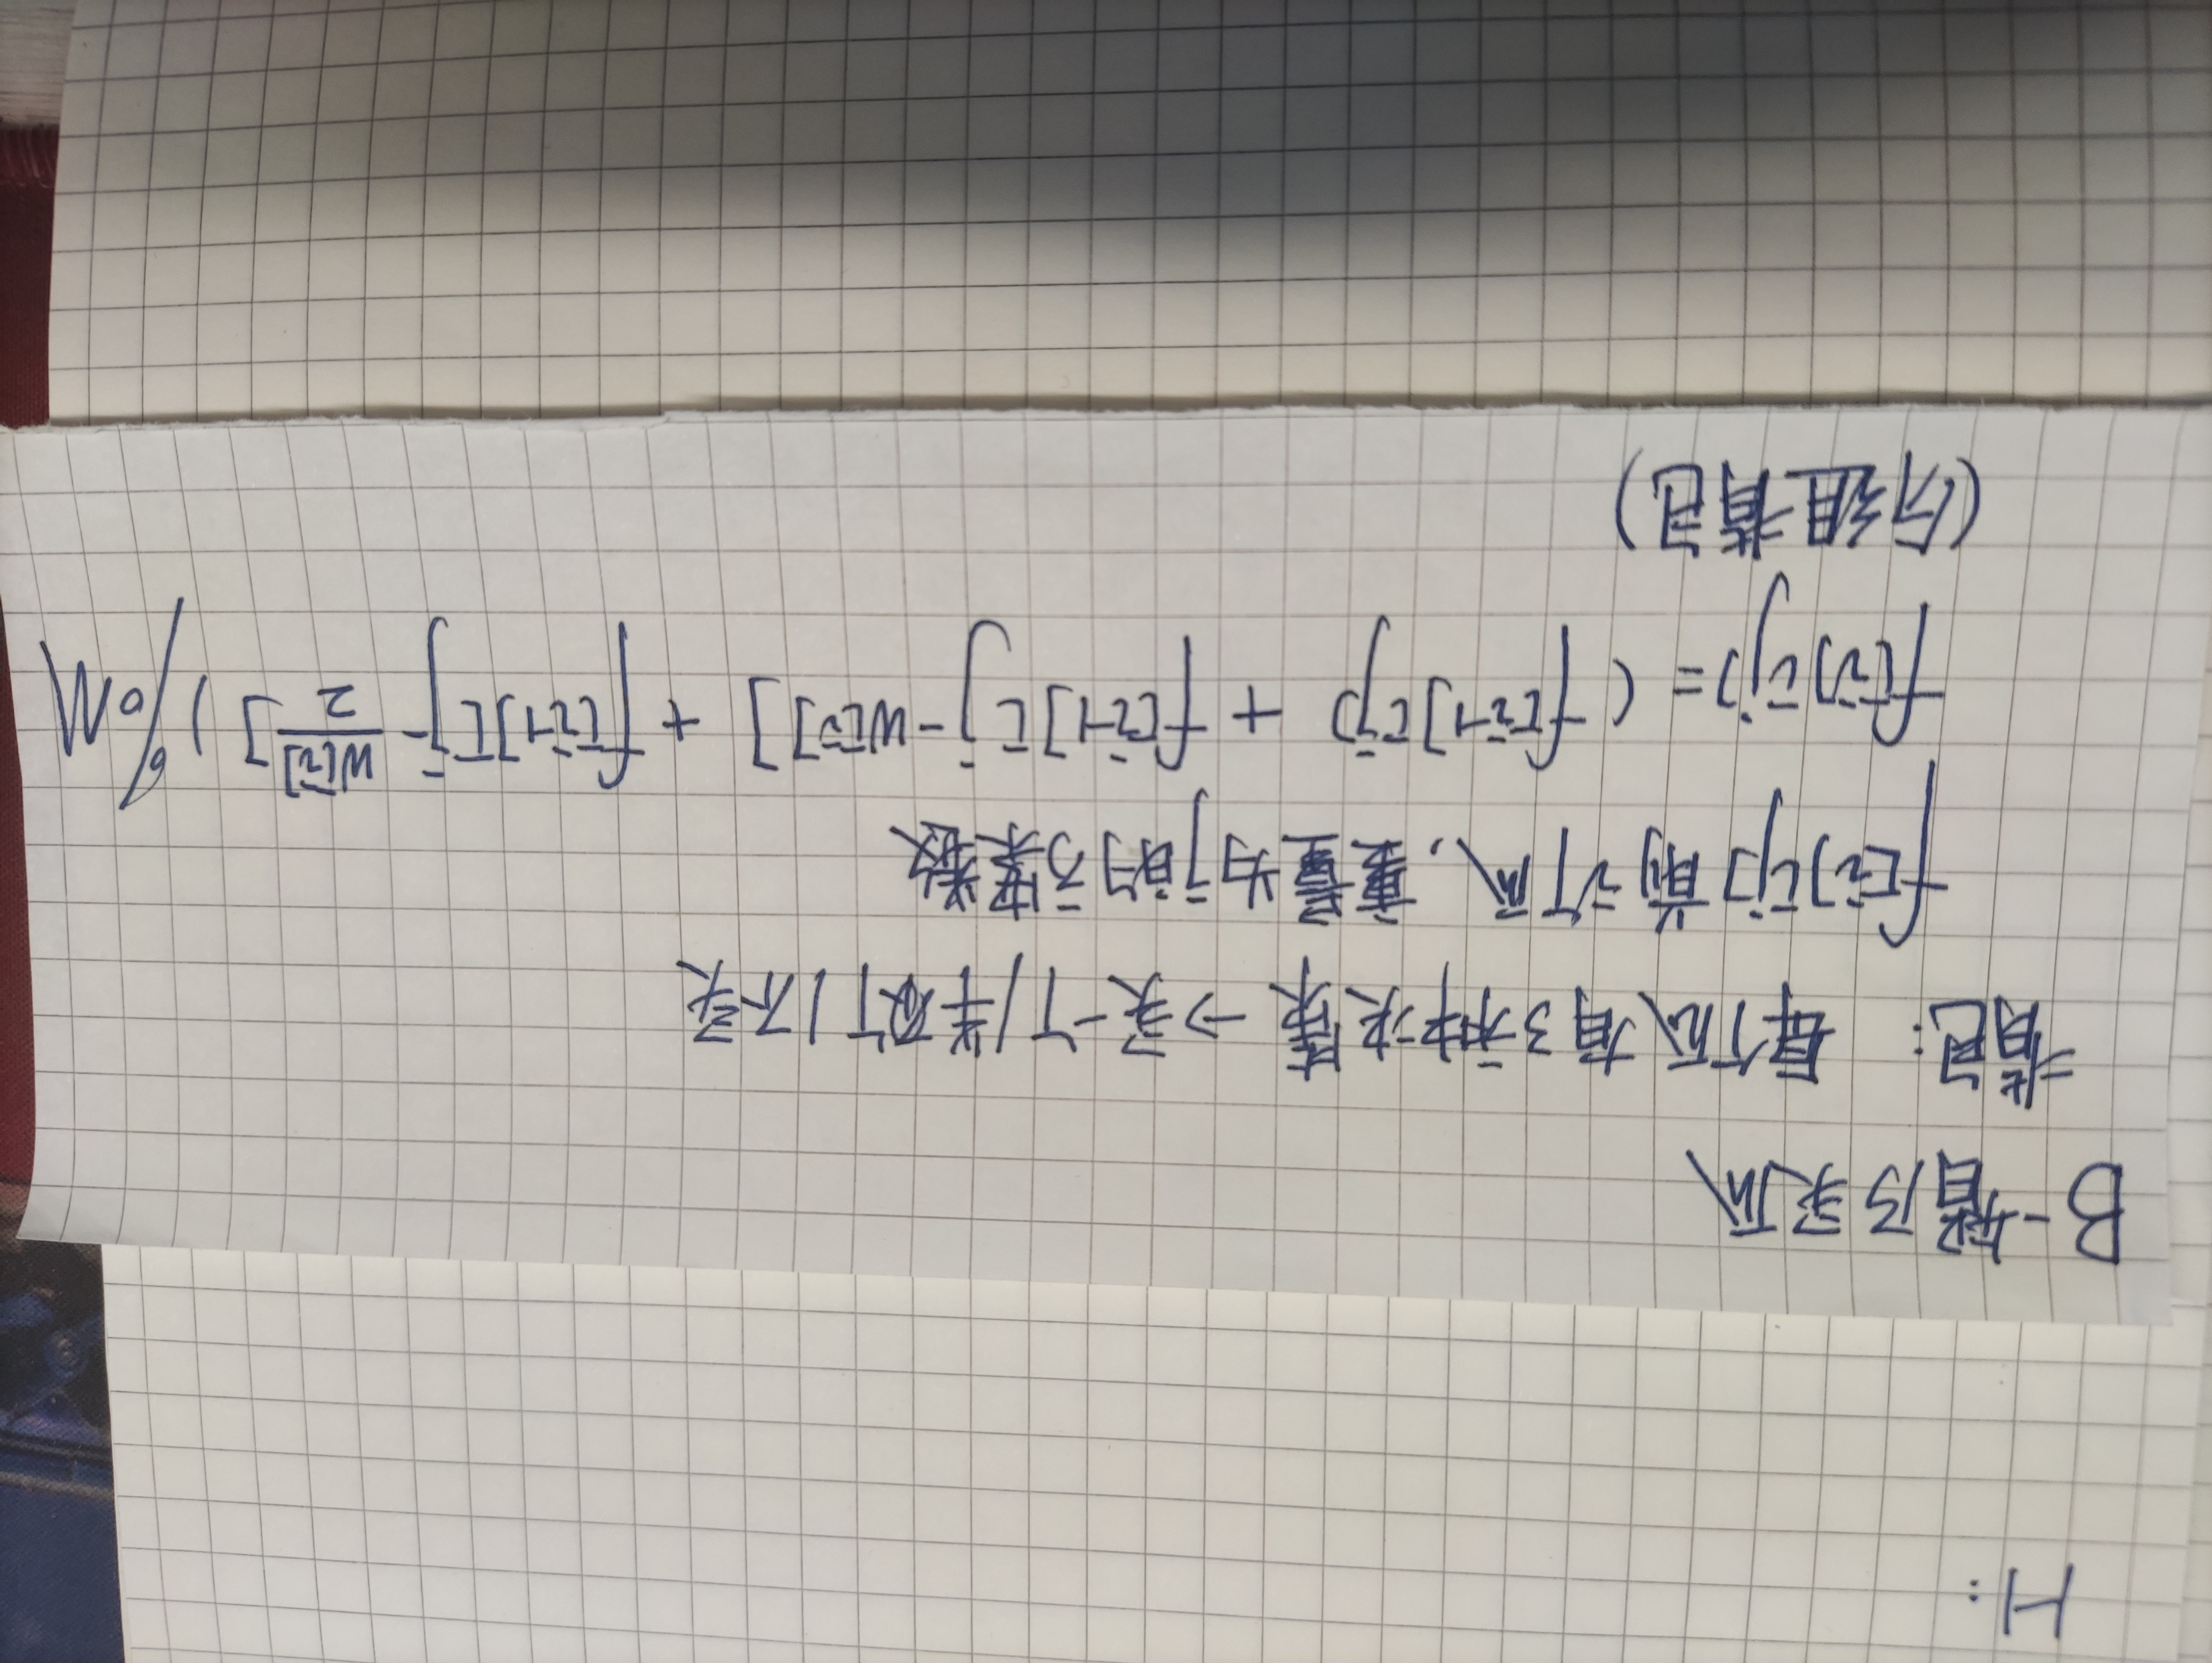 H:
B-智乃买瓜
背包: 每个瓜有3种决策 → 买一个/半个/不买
f[i][j] 前i个瓜, 重量为j的方案数
f[i][j] = (f[i-1][j] + f[i-1][j-w[i]] + f[i-1][j-w[i]/2])%M
(分组背包)